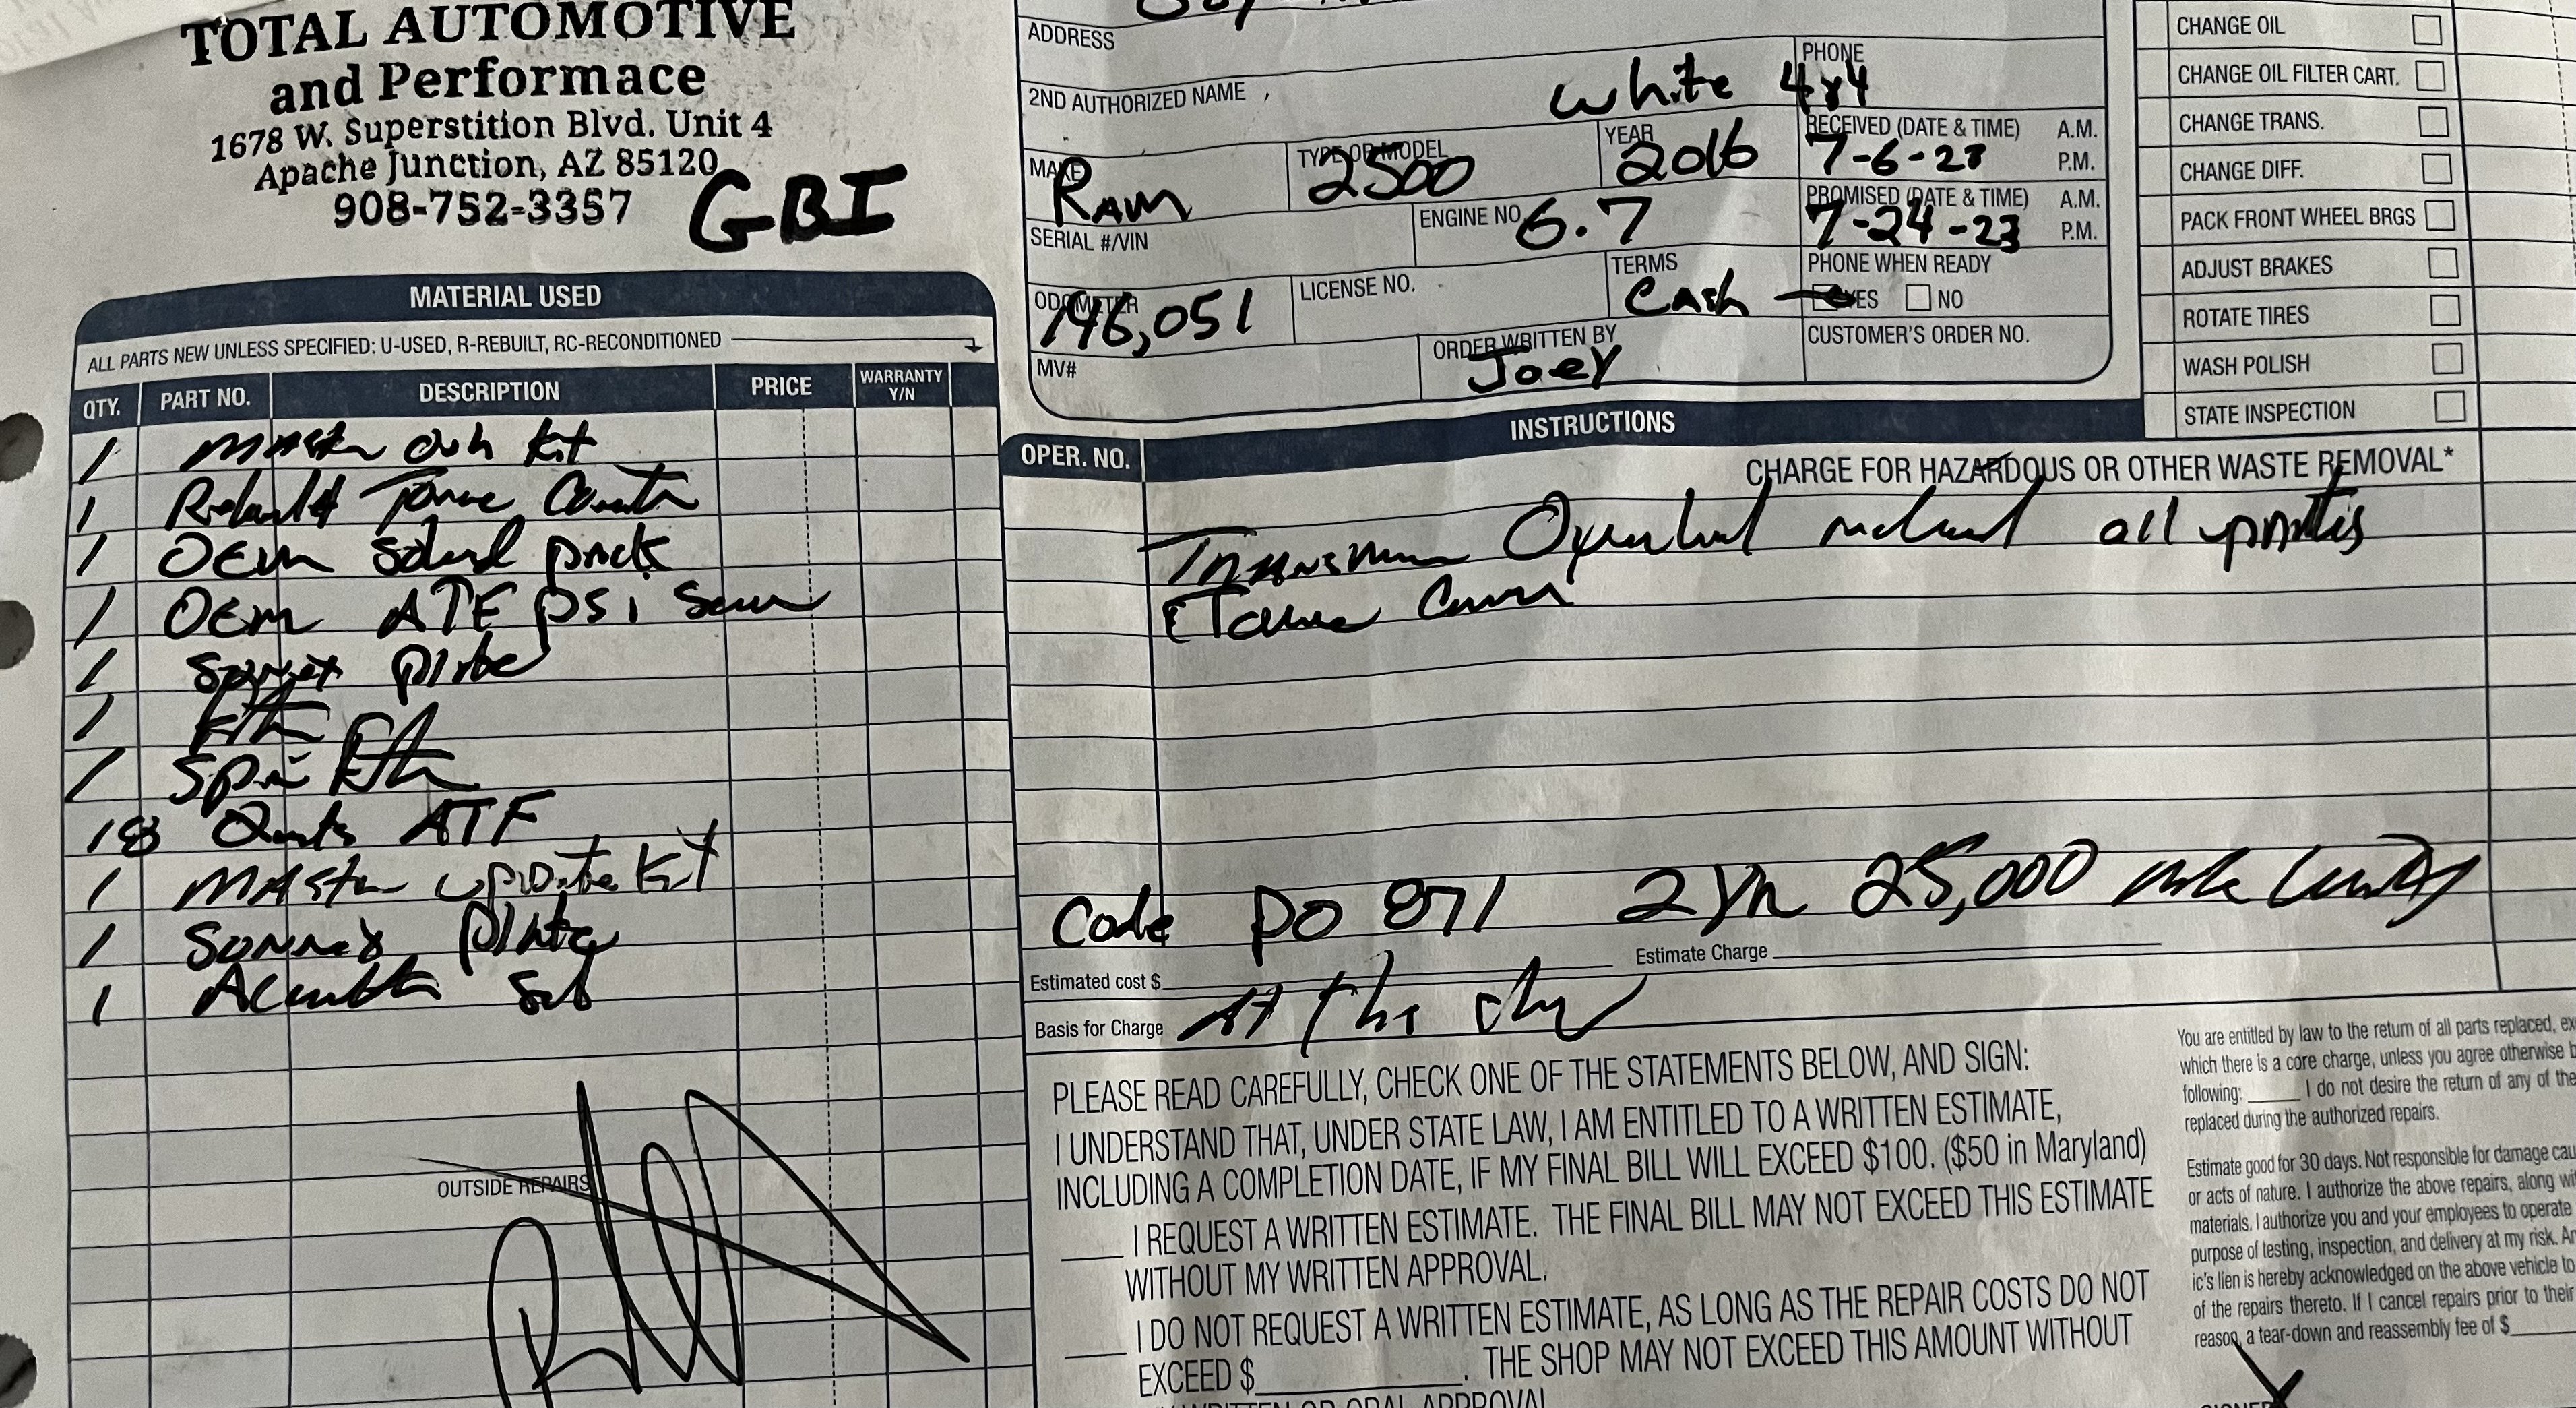 TOTAL AUTOMOTIVE
and Performace
1678 W. Superstition Blvd. Unit 4
Apache Junction, AZ 85120
908-752-3357
GBI
MATERIAL USED
ALL PARTS NEW UNLESS SPECIFIED: U-USED, R-REBUILT, RC-RECONDITIONED
QTY. PART NO. DESCRIPTION PRICE WARRANTY Y/N
1 Master kit
1 Torque
1 OEM pack
1 OEM ATF PSI
1 plate
1
1
18 Quarts ATF
1 Master update kit
1 Sonnax plate
1
OUTSIDE REPAIRS
ADDRESS
2ND AUTHORIZED NAME
white 4x4
PHONE
MAKE Ram
TYPE OR MODEL 2500
YEAR 2016
RECEIVED (DATE & TIME) A.M. P.M.
7-6-23
SERIAL #/VIN
ENGINE NO. 6.7
PROMISED (DATE & TIME) A.M. P.M.
7-24-23
ODOMETER 146,051
LICENSE NO.
TERMS Cash
PHONE WHEN READY
YES NO
MV#
ORDER WRITTEN BY Joey
CUSTOMER'S ORDER NO.
CHANGE OIL
CHANGE OIL FILTER CART.
CHANGE TRANS.
CHANGE DIFF.
PACK FRONT WHEEL BRGS
ADJUST BRAKES
ROTATE TIRES
WASH POLISH
STATE INSPECTION
OPER. NO. INSTRUCTIONS
CHARGE FOR HAZARDOUS OR OTHER WASTE REMOVAL*
all
Code PO 871 2 yr 25,000 mile
Estimated cost $ Estimate Charge
Basis for Charge
PLEASE READ CAREFULLY, CHECK ONE OF THE STATEMENTS BELOW, AND SIGN:
I UNDERSTAND THAT, UNDER STATE LAW, I AM ENTITLED TO A WRITTEN ESTIMATE,
INCLUDING A COMPLETION DATE, IF MY FINAL BILL WILL EXCEED $100. ($50 in Maryland)
____ I REQUEST A WRITTEN ESTIMATE. THE FINAL BILL MAY NOT EXCEED THIS ESTIMATE
WITHOUT MY WRITTEN APPROVAL.
____ I DO NOT REQUEST A WRITTEN ESTIMATE, AS LONG AS THE REPAIR COSTS DO NOT
EXCEED $____. THE SHOP MAY NOT EXCEED THIS AMOUNT WITHOUT
WRITTEN OR ORAL APPROVAL
You are entitled by law to the return of all parts replaced,
which there is a core charge, unless you agree otherwise
following: ____ I do not desire the return of any of the
replaced during the authorized repairs.
Estimate good for 30 days. Not responsible for damage
or acts of nature. I authorize the above repairs, along
materials. I authorize you and your employees to operate
purpose of testing, inspection, and delivery at my risk.
ic's lien is hereby acknowledged on the above vehicle to
of the repairs thereto. If I cancel repairs prior to their
reason, a tear-down and reassembly fee of $____